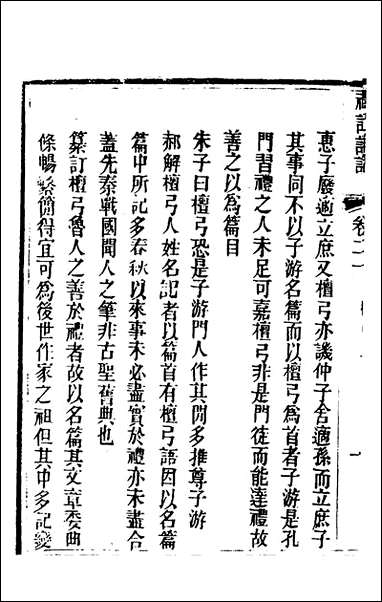 惠子廢適立庶又檀弓亦譏仲子舍適孫而立庶子
其事同不以子游名篇而以檀弓爲首者子游是孔
門習禮之人未足可嘉檀弓非是門徒而能達禮故
善之以爲篇目
朱子曰檀弓恐是子游門人作其閒多推尊子游
郝解檀弓人姓名記者以篇首有檀弓語因以名篇
篇中所記多春秋以來事未必盡實於禮亦未盡合
蓋先秦戰國聞人之筆非古聖舊典也
纂訂檀弓魯人之善於禮者故以名篇其文章委曲
條暢繁簡得宜可爲後世作家之祖但其中多記變